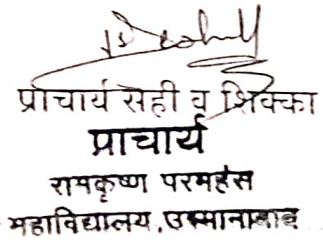 प्राचार्य सही व शिक्का
प्राचार्य
रामकृष्ण परमहंस
महाविद्यालय, उस्मानाबाद